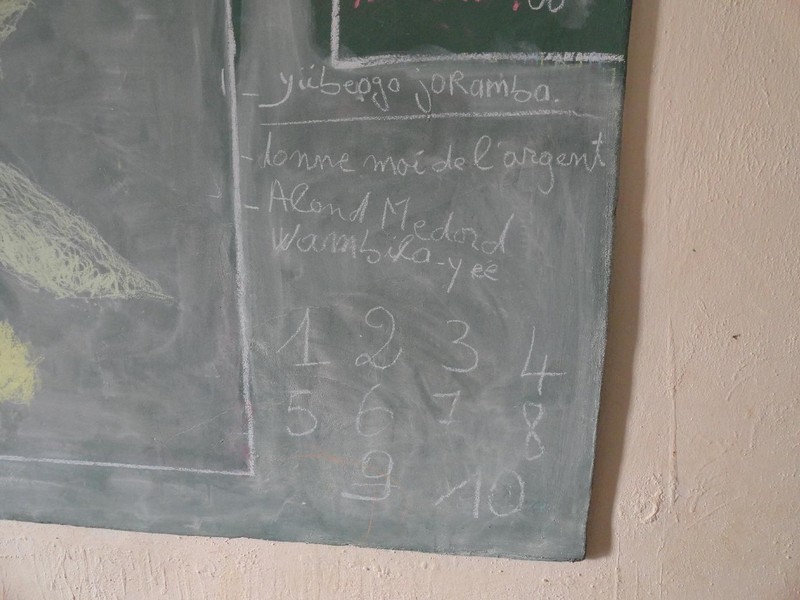 1 - yiibeogo joRamba.
- donne moi de l'argent
- Alond Medord
Wambila-yéé
1 2 3 4
5 6 7 8
9 10